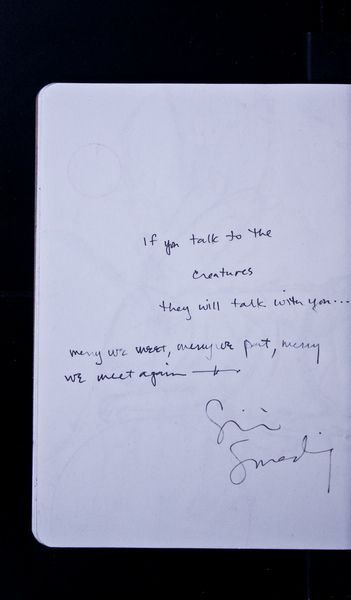 If you talk to the
creatures
they will talk with you...
merry we meet, merry we part, merry
we meet again